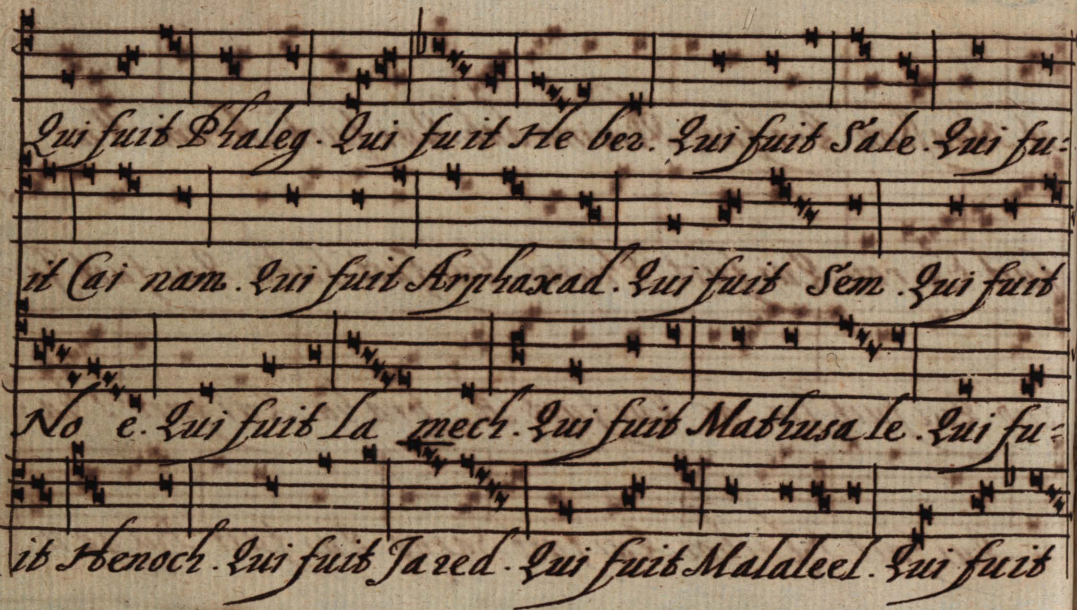 Qui fuit Phaleg. Qui fuit He ber. Qui fuit Sale. Qui fu=
it Cai nam. Qui fuit Arphaxad. Qui fuit Sem. Qui fuit
No e. Qui fuit La mech. Qui fuit Mathusa le. Qui fu=
it Henoch. Qui fuit Jared. Qui fuit Malaleel. Qui fuit